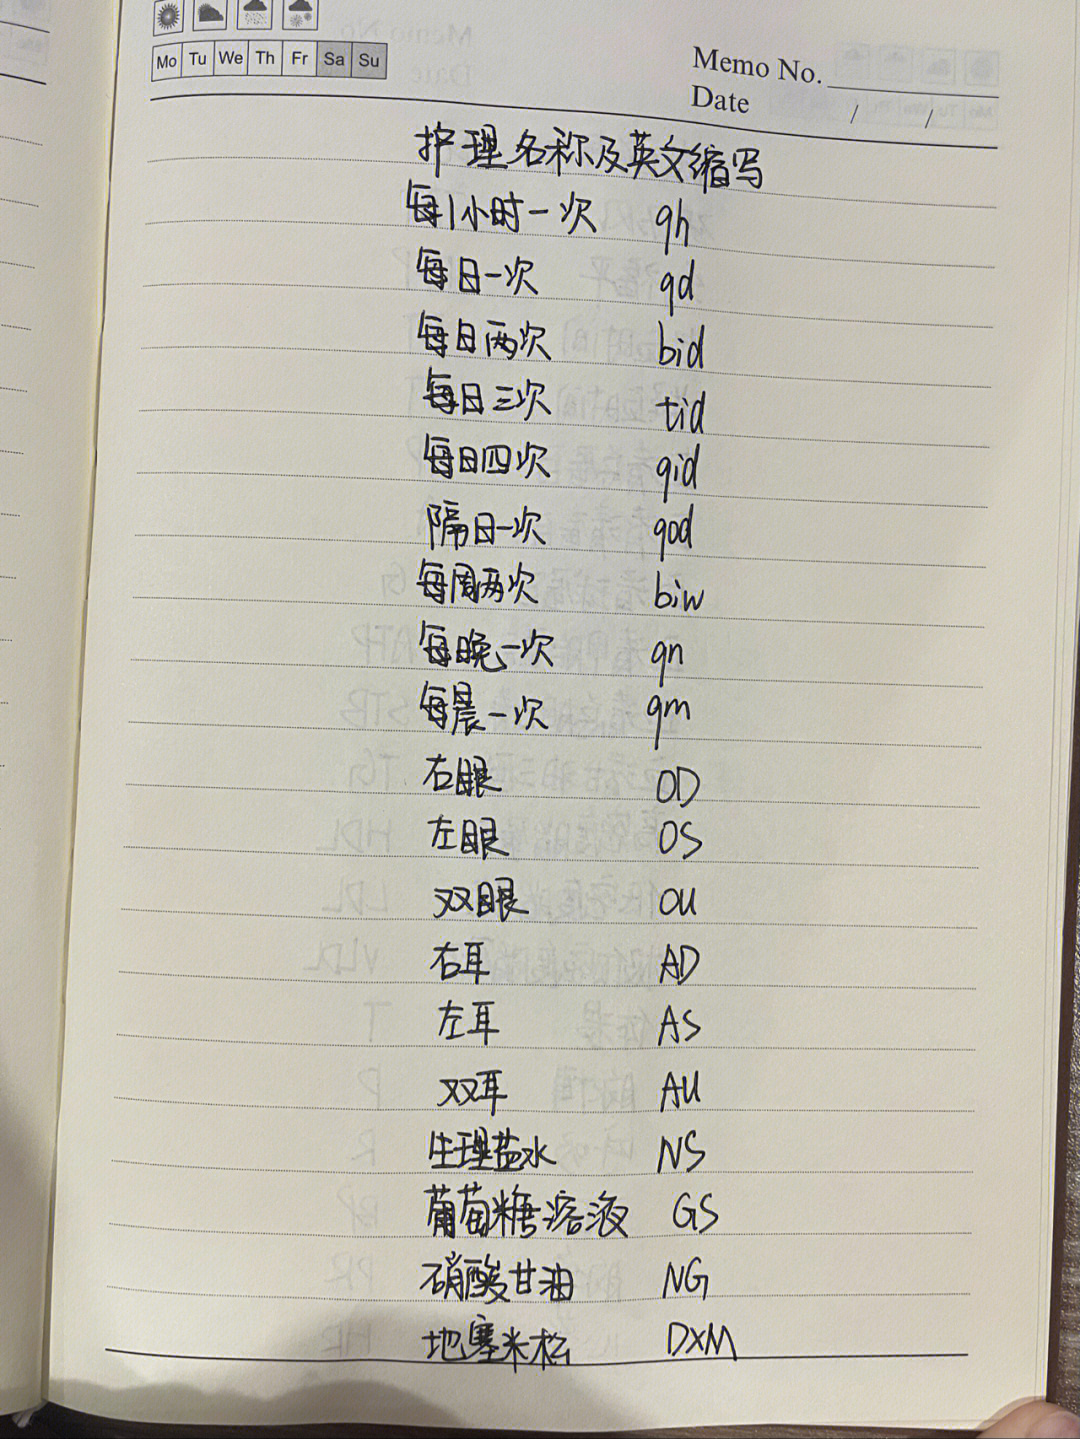 Mo Tu We Th Fr Sa Su
Memo No.
Date / /
护理名称及英文缩写
每1小时一次 qh
每日一次 qd
每日两次 bid
每日三次 tid
每日四次 qid
隔日一次 qod
每周两次 biw
每晚一次 qn
每晨一次 qm
右眼 OD
左眼 OS
双眼 OU
右耳 AD
左耳 AS
双耳 AU
生理盐水 NS
葡萄糖溶液 GS
硝酸甘油 NG
地塞米松 DXM